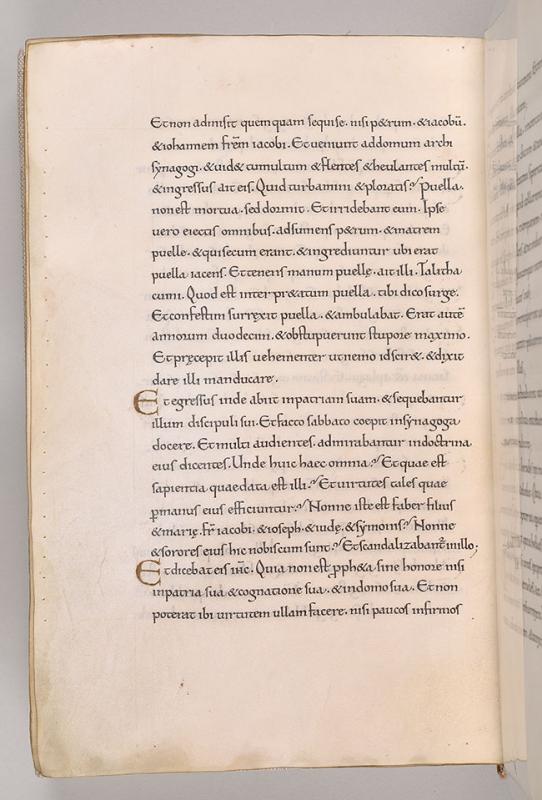 Et non admisit quemquam sequi se. nisi p&rum. &iacobū.
&iohannem frēm iacobi. Et veniunt addomum archi
synagogi. &uid& tumultum &flentes &heulantes multū.
&ingressus ait eis. Quid turbamini &ploratis? Puella.
non est mortua. sed dormit. Et irridebant eum. Ipse
vero eiectis omnibus. adsumens p&rum. &matrem
puelle. &qui secum erant. &ingrediuntur ubi erat
puella iacens. Et tenens manum puellę. ait illi. Talitha
cumi. Quod est interpr&atum puella. tibi dico surge.
Et confestim surrexit puella. &ambulabat. Erat autē
annorum duodecim. &obstupuerunt stupore maximo.
Et pręcepit illis uehementer ut nemo id scir&. &dixit
dare illi manducare.
Et egressus inde abiit inpatriam suam. &sequebantur
illum discipuli sui. Et facto sabbato coepit insynagoga
docere. Et multi audientes. admirabantur indoctrina
eius dicentes. Unde huic haec omnia? Et quae est
sapientia quae data est illi? Et uirtutes tales quae
p̄ manus eius efficiuntur? Nonne iste est faber filius
&marię. fr̄ iacobi. &ioseph. &iudę. &symoins? Nonne
&sorores eius hic nobiscum sunt? Et scandalizabant̄ inillo;
Et dicebat eis ihc̄. Quia non est pph&a sine honore nisi
inpatria sua &cognatione sua. &indomo sua. Et non
poterat ibi uirtutem ullam facere. nisi paucos infirmos